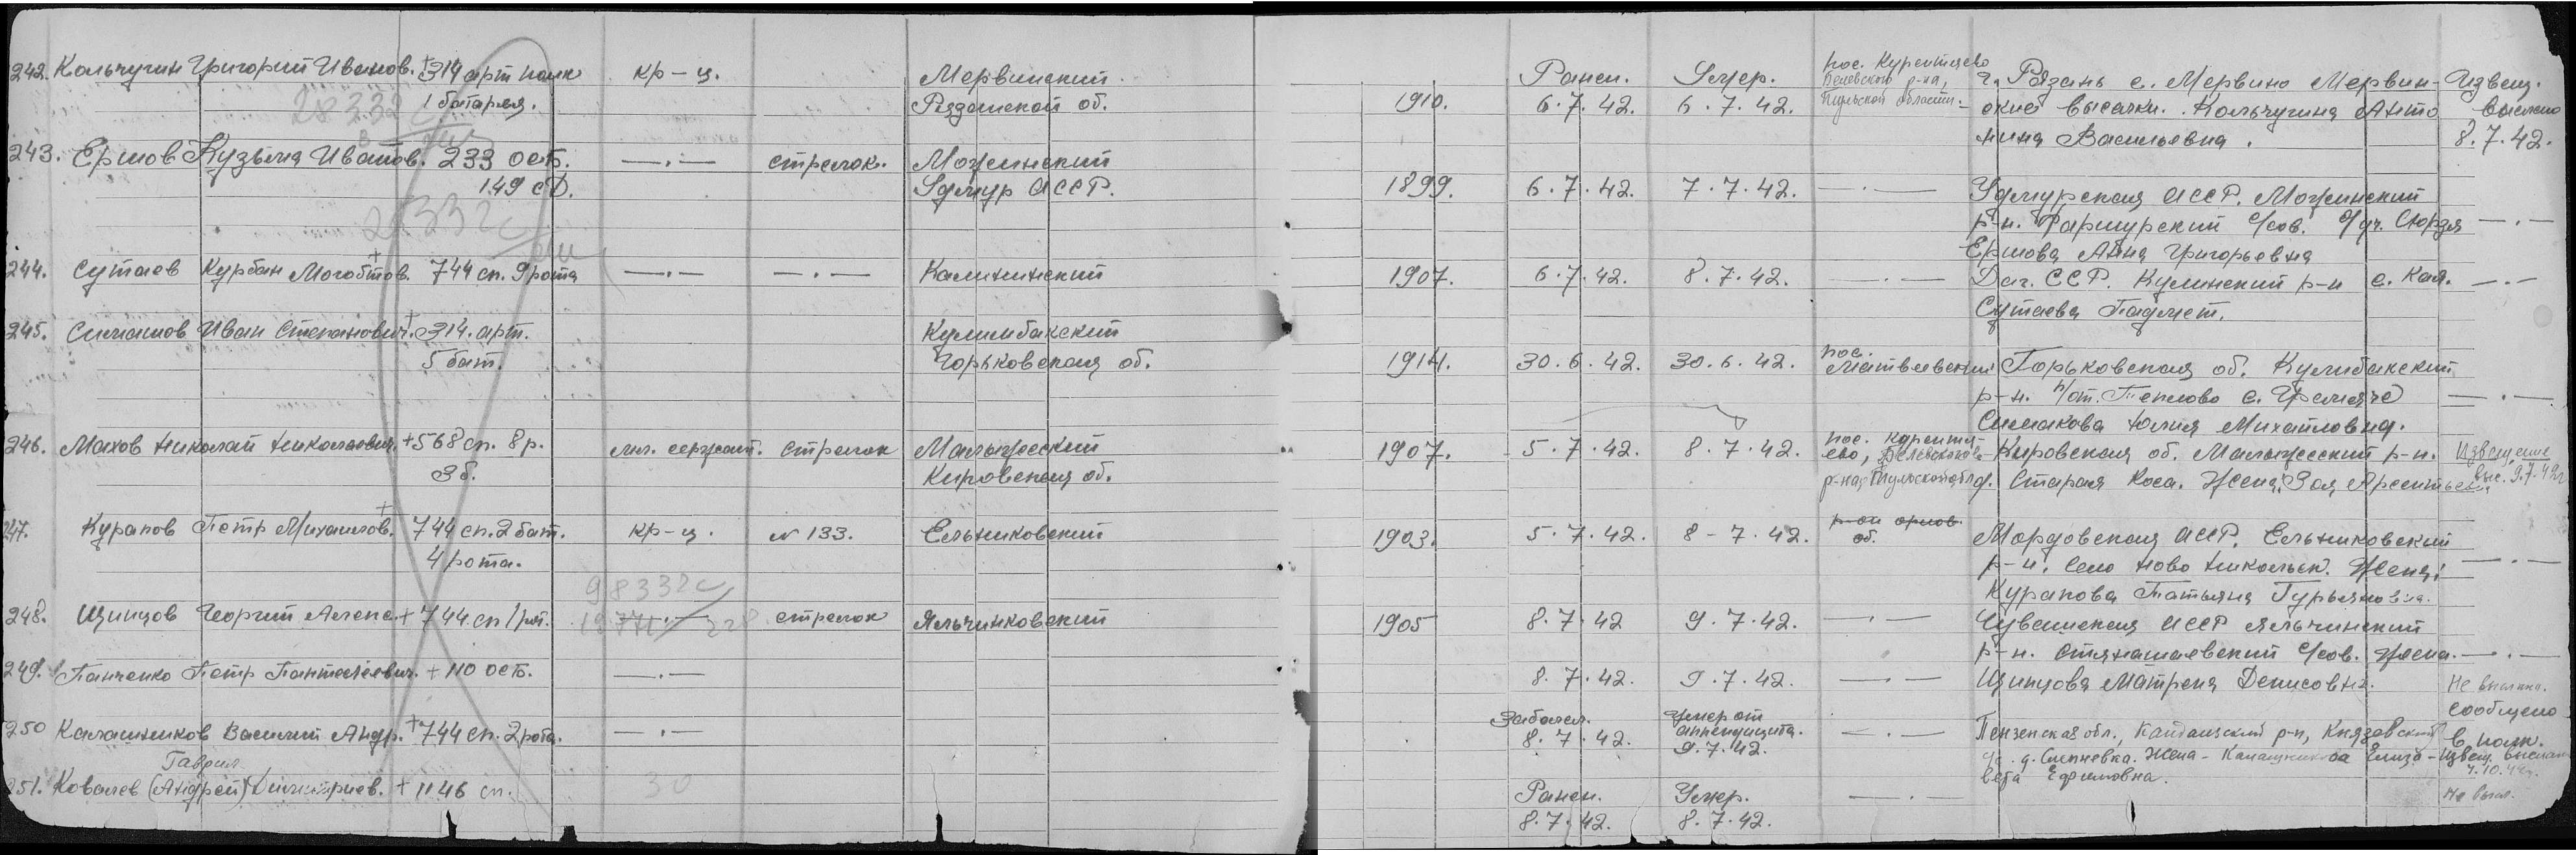 242. Кольчугин Григорий Иванов. + 314 арт полк кр-ц. Мервинский 1910. Ранен. Умер. пос. Курентяево г. Рязань с. Мервино Мервин- Извещ.
28332 1 батарея. Рязанской об. 6.7.42. 6.7.42. Белевского р-на, Тульской области ские выселки. Кольчугина Анто выслано
нина Васильевна. 8.7.42.
243. Ершов Кузьма Иванов. 233 ОСБ. —·— стрелок. Можгинский
149 сд. Удмур АССР. 1899. 6.7.42. 7.7.42. —·— Удмурская АССР. Можгинский
р-н. с/сов. Сюрзя —·—
Ершова Анна Григорьевна
244. Сутаев Курбан + 744 сп. 9 рота —·— —·— Калининский 1907. 6.7.42. 8.7.42. —·— Даг. ССР. Кулинский р-н с. Кая. —·—
Сутаева
245. Симаков Иван Степанович. + 314. арт. Кулимбакский
5 бат. Горьковская об. 1914. 30.6.42. 30.6.42. пос. Матвеевский Горьковская об. Кулибакский
р-н. п/от. Теплово с. —·—
Симакова Юлия Михайловна.
246. Махов Николай Николаевич. + 568 сп. 8 р. мл. сержант. стрелок Малмыжский 1907. 5.7.42. 8.7.42. пос. Курентяево, Белевского Кировская об. Малмыжский р-н. Извещение
3 б. Кировская об. р-на, Тульской обл. д. Старая Коса. Жена: Зоя Арсентьев. выс. 9.7.42г
247. Курапов Петр Михайлов. + 744 сп. 2 бат. кр-ц. № 133. Ельниковский 1903. 5.7.42. 8-7.42. р-он орлов. об. Мордовская АССР. Ельниковский
4 рота. р-н. село Ново Никольск. Жена: —·—
98332с Курапова Татьяна Гурьяновна.
248. Щипцов Георгий Алекс. + 744 сп 1 рот. —·— стрелок Яльчинковский 1905 8.7.42 9.7.42. —·— Чувашская АССР Яльчинский
р-н. с/сов. Жена. —·—
249. Панченко Петр Пантелеевич. + 110 ОСБ. —·— 8.7.42. 9.7.42. —·— Щипцова Матрена Денисовна. Не выслано.
Сообщено
250 Калашников Василий Андр. + 744 сп. 2 рота. —·— Заболел. 8.7.42. Умер от аппендицита. 9.7.42. —·— Пензенская обл., р-н, Князевский в полк.
д. Жена - Калашникова Елиза- Извещ. выслан
вета Ефимовна. 7.10.42г.
Гаврил
251. Ковалев (Андрей) Дмитриев. + 1146 сп. 30 Ранен. Умер. —·— Не высл.
8.7.42. 8.7.42.